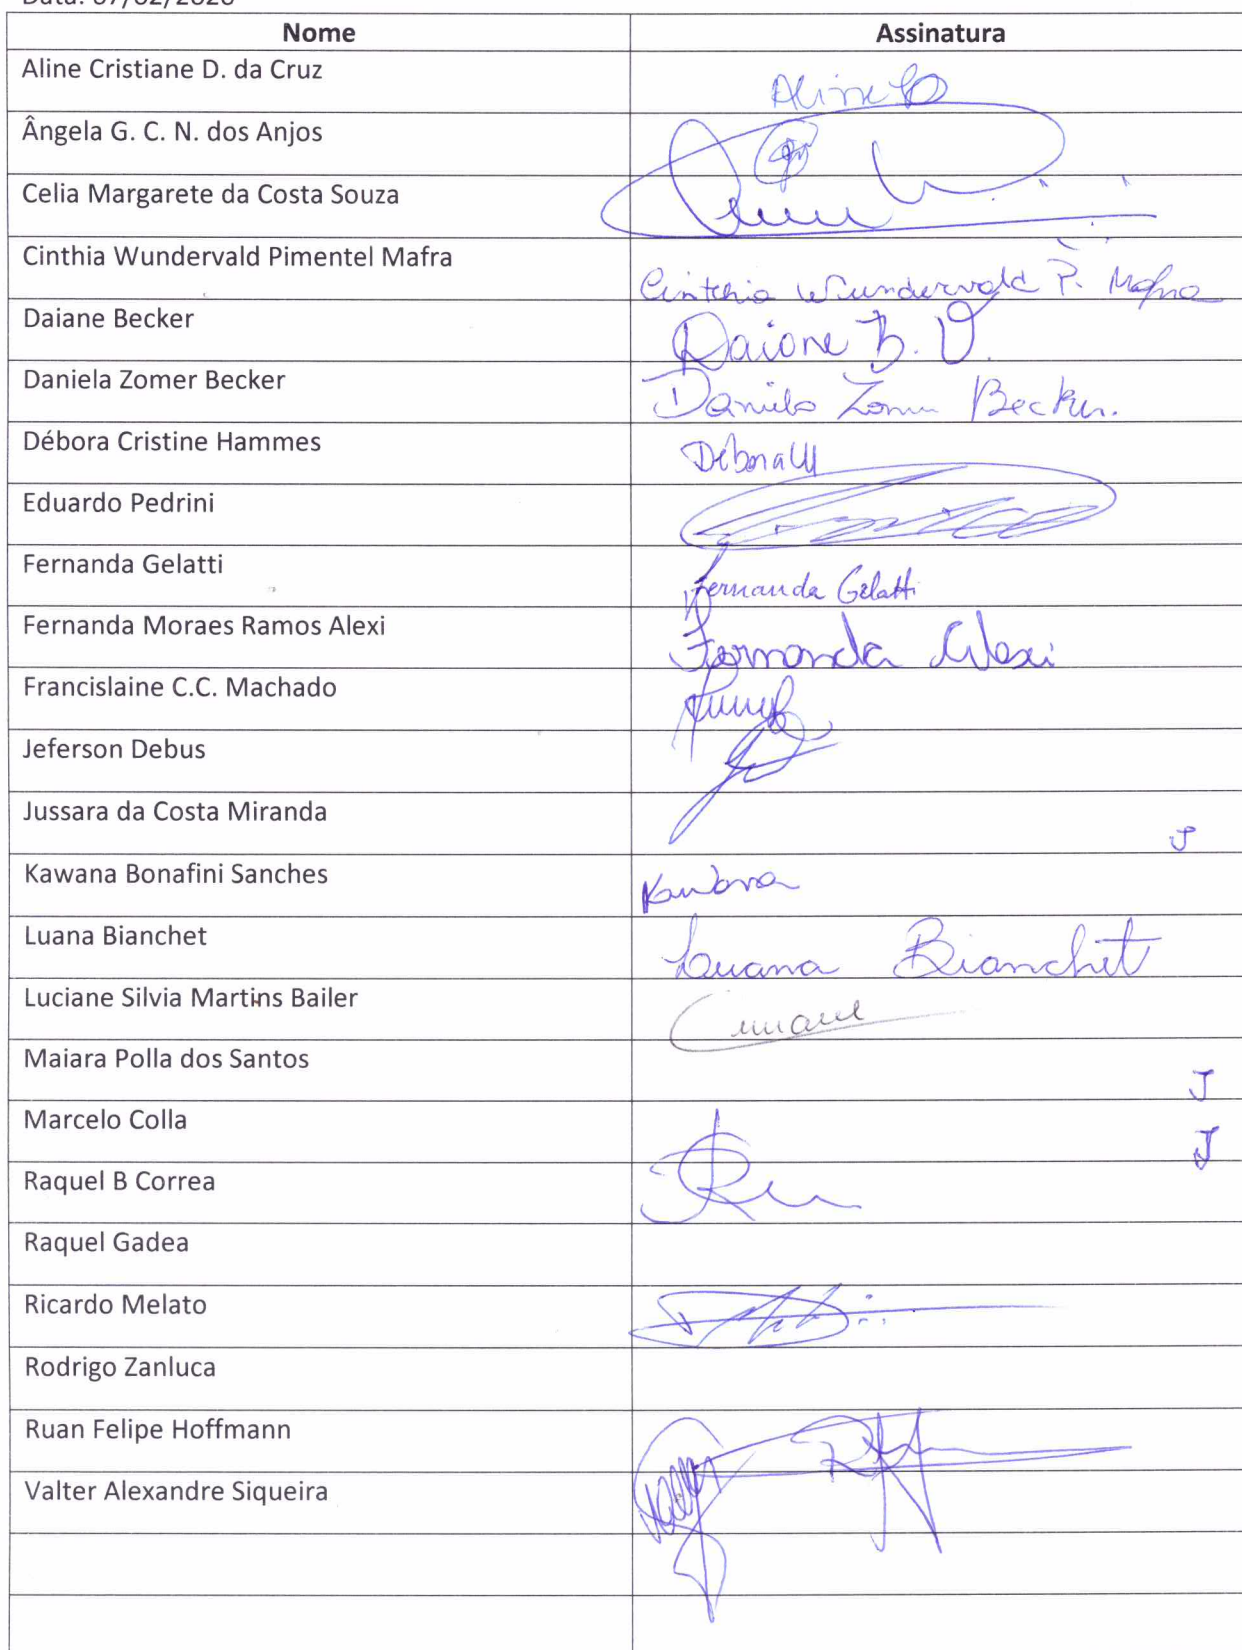 Nome Assinatura
Aline Cristiane D. da Cruz Aline
Ângela G. C. N. dos Anjos
Celia Margarete da Costa Souza
Cinthia Wundervald Pimentel Mafra Cinthia Wundervald P. Mafra
Daiane Becker Daiane B. V.
Daniela Zomer Becker Daniela Zomer Becker.
Débora Cristine Hammes Débora
Eduardo Pedrini
Fernanda Gelatti Fernanda Gelatti
Fernanda Moraes Ramos Alexi Fernanda Alexi
Francislaine C.C. Machado
Jeferson Debus
Jussara da Costa Miranda J
Kawana Bonafini Sanches Kawana
Luana Bianchet Luana Bianchet
Luciane Silvia Martins Bailer Luciane
Maiara Polla dos Santos J
Marcelo Colla J
Raquel B Correa
Raquel Gadea
Ricardo Melato
Rodrigo Zanluca
Ruan Felipe Hoffmann
Valter Alexandre Siqueira